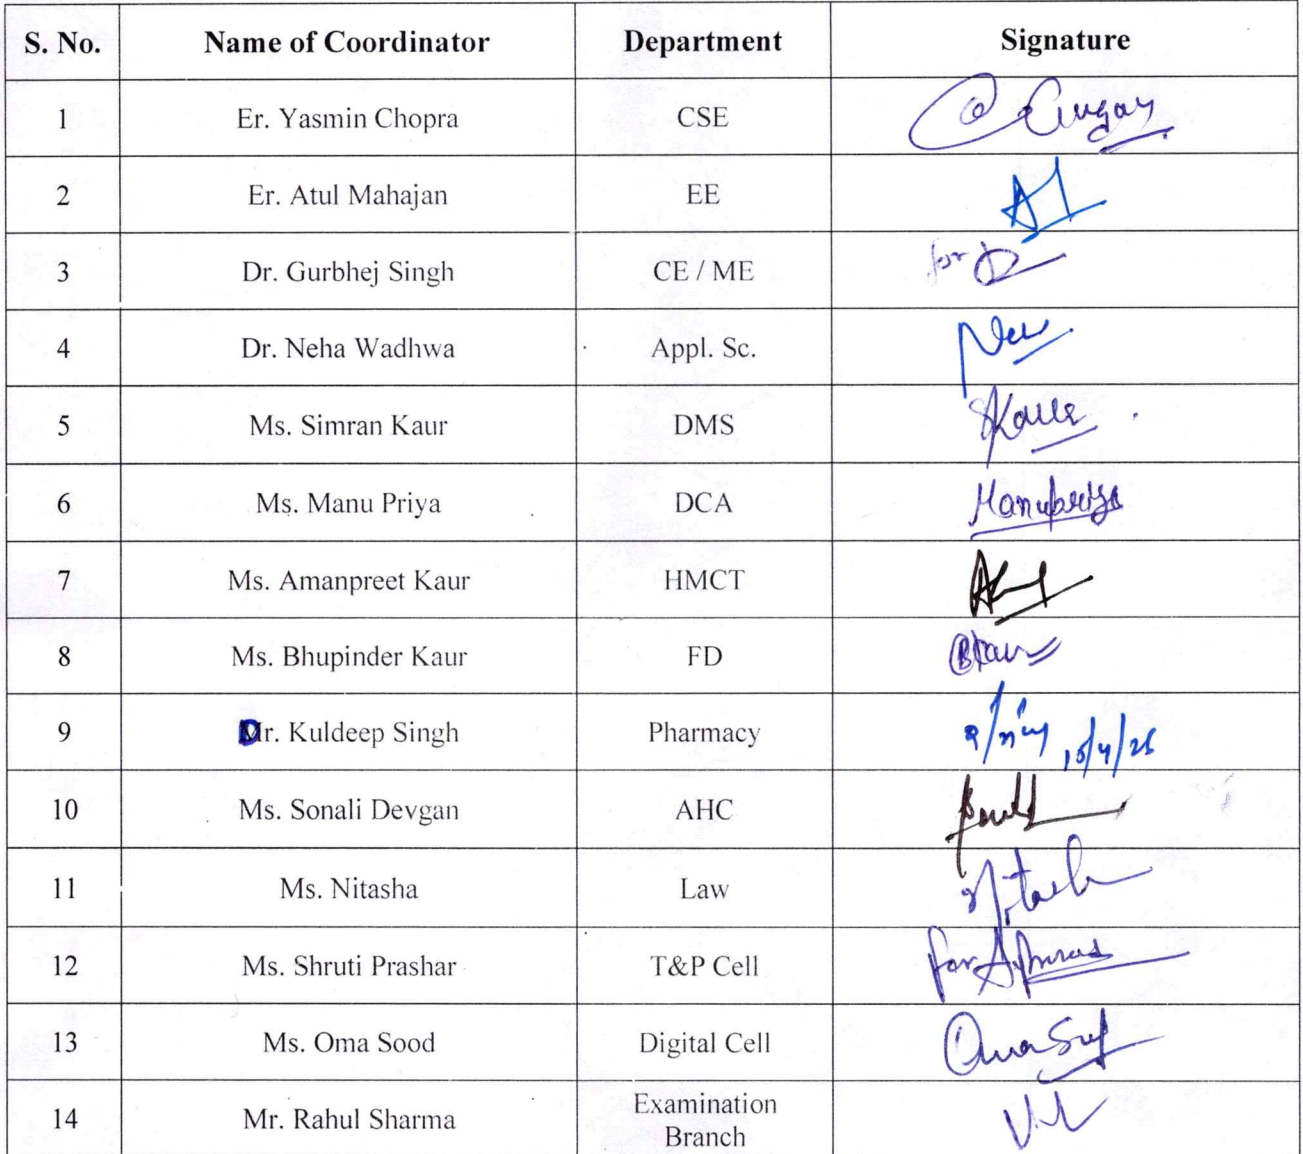 S. No. Name of Coordinator Department Signature
1 Er. Yasmin Chopra CSE
2 Er. Atul Mahajan EE
3 Dr. Gurbhej Singh CE / ME for
4 Dr. Neha Wadhwa Appl. Sc.
5 Ms. Simran Kaur DMS
6 Ms. Manu Priya DCA Manupriya
7 Ms. Amanpreet Kaur HMCT
8 Ms. Bhupinder Kaur FD
9 Dr. Kuldeep Singh Pharmacy
10 Ms. Sonali Devgan AHC
11 Ms. Nitasha Law Nitasha
12 Ms. Shruti Prashar T&P Cell for
13 Ms. Oma Sood Digital Cell Oma Sood
14 Mr. Rahul Sharma Examination
Branch